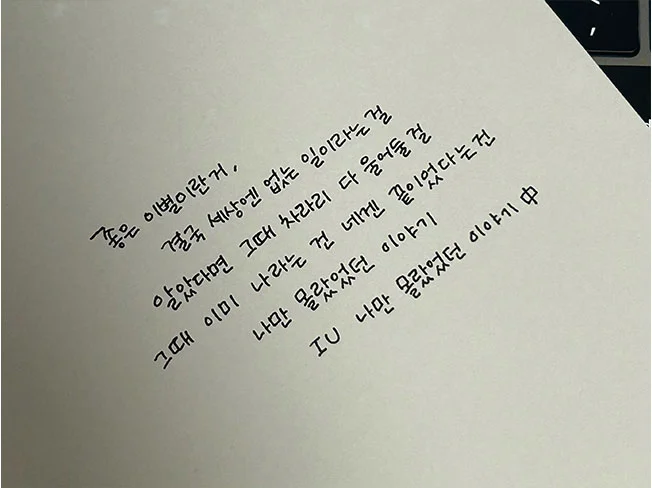 좋은 이별이란 거,
결국 세상엔 없는 일이라는 걸
알았다면 그때 차라리 다 울어둘 걸
그때 이미 나라는 건 네겐 끝이었다는 건
나만 몰랐었던 이야기
IU 나만 몰랐었던 이야기 中